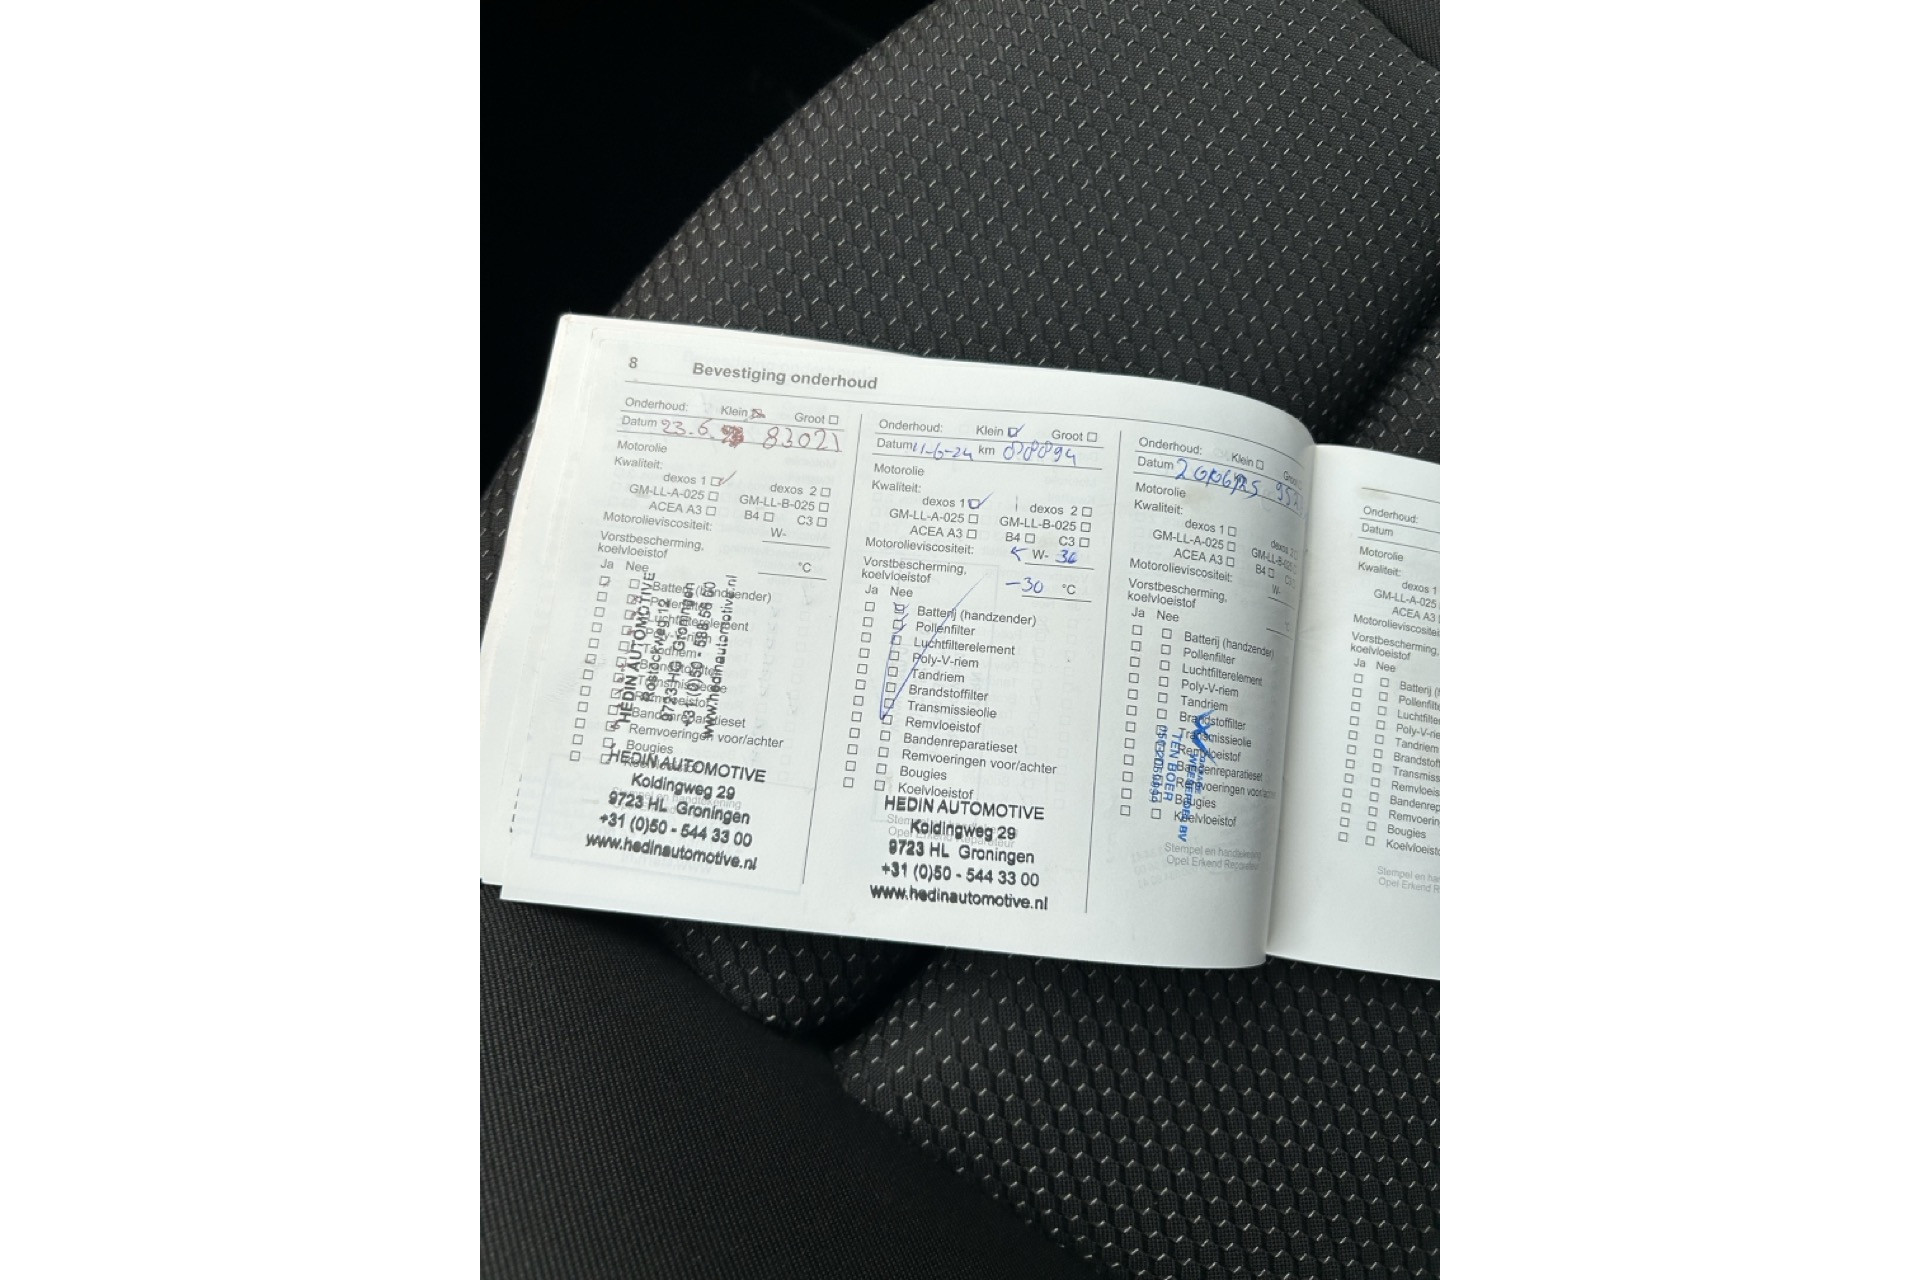 8 Bevestiging onderhoud
Onderhoud: Klein Groot
Datum 23.6. 83021
Motorolie
Kwaliteit:
dexos 1 dexos 2
GM-LL-A-025 GM-LL-B-025
ACEA A3 B4 C3
Motorolieviscositeit: W-
Vorstbescherming,
koelvloeistof °C
Ja Nee
Batterij (handzender)
Pollenfilter
Luchtfilterelement
Poly-V-riem
Tandriem
Brandstoffilter
Transmissieolie
Remvloeistof
Bandenreparatieset
Remvoeringen voor/achter
Bougies
Koelvloeistof
HEDIN AUTOMOTIVE
Rostockweg 12
9723 HG Groningen
www.hedinautomotive.nl
HEDIN AUTOMOTIVE
Koldingweg 29
9723 HL Groningen
+31 (0)50 - 544 33 00
www.hedinautomotive.nl
Onderhoud: Klein Groot
Datum 11-6-24 km 88894
Motorolie
Kwaliteit:
dexos 1 dexos 2
GM-LL-A-025 GM-LL-B-025
ACEA A3 B4 C3
Motorolieviscositeit: W-
Vorstbescherming,
koelvloeistof -30 °C
Ja Nee
Batterij (handzender)
Pollenfilter
Luchtfilterelement
Poly-V-riem
Tandriem
Brandstoffilter
Transmissieolie
Remvloeistof
Bandenreparatieset
Remvoeringen voor/achter
Bougies
Koelvloeistof
Stempel en handtekening
Opel Erkend Reparateur
HEDIN AUTOMOTIVE
Koldingweg 29
9723 HL Groningen
+31 (0)50 - 544 33 00
www.hedinautomotive.nl
Onderhoud: Klein
Datum
Motorolie
Kwaliteit:
dexos 1
GM-LL-A-025 GM-LL-B-025
ACEA A3 B4
Motorolieviscositeit: W-
Vorstbescherming,
koelvloeistof
Ja Nee
Batterij (handzender)
Pollenfilter
Luchtfilterelement
Poly-V-riem
Tandriem
Brandstoffilter
Transmissieolie
Remvloeistof
Bandenreparatieset
Remvoeringen
Bougies
Koelvloeistof
TEN BOER
Stempel en handtekening
Opel Erkend Reparateur
Onderhoud:
Datum
Motorolie
Kwaliteit:
dexos 1
GM-LL-A-025
ACEA A3
Vorstbescherming,
koelvloeistof
Ja Nee
Poly-V-riem
Tandriem
Bougies
Stempel en
Opel Erkend